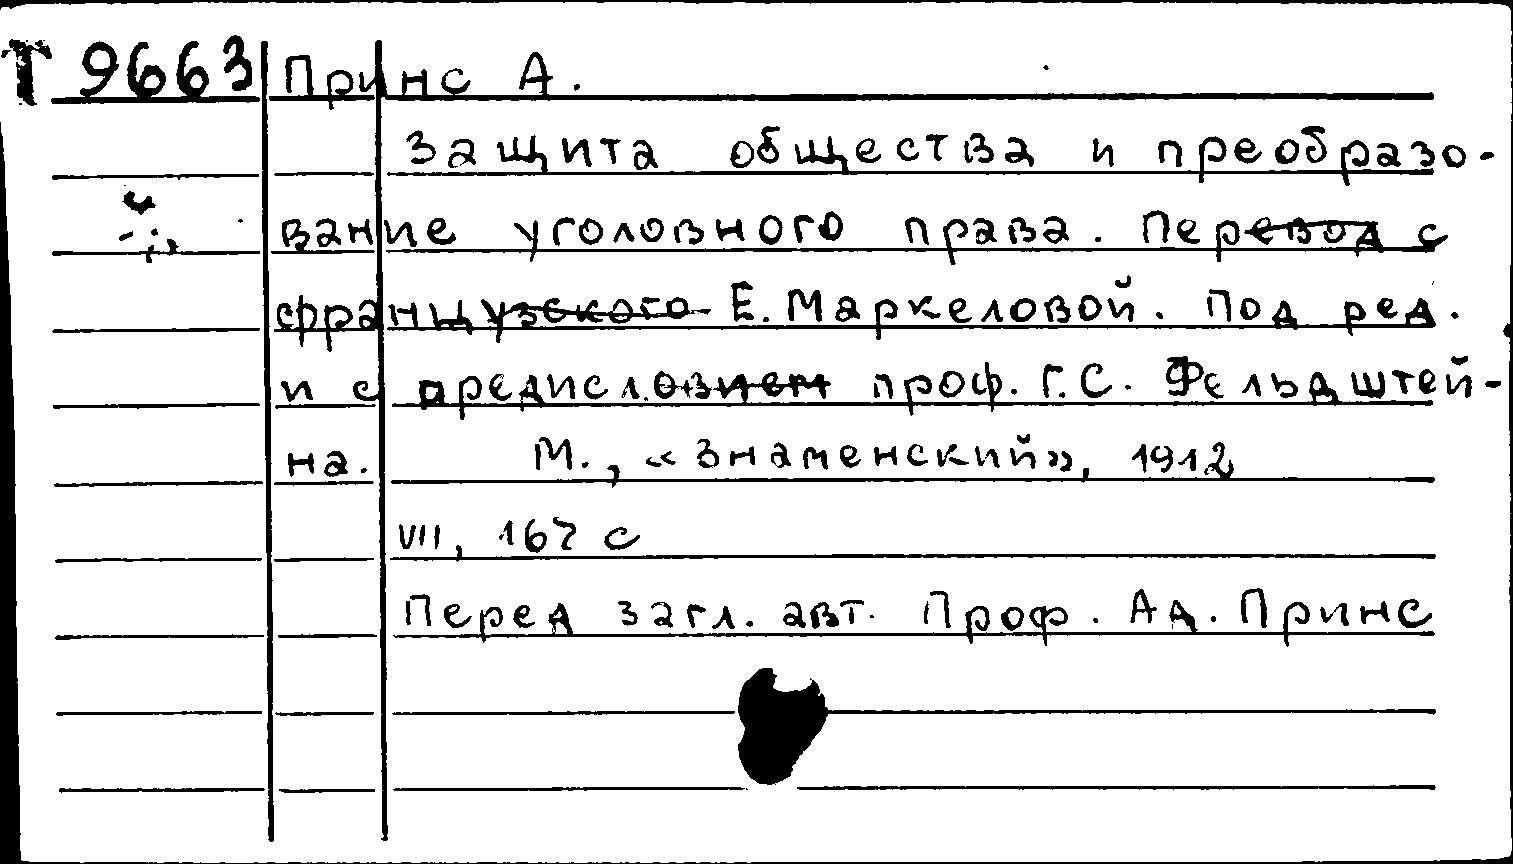 Т 9663 Принс А.
Защита общества и преобразо-
вание уголовного права. Перевод с
французского Е. Маркеловой. Под ред.
и с предисловием проф. Г. С. Фельдштей-
на. М., «Знаменский», 1912
VII, 167 с
Перед загл. авт. Проф. Ад. Принс